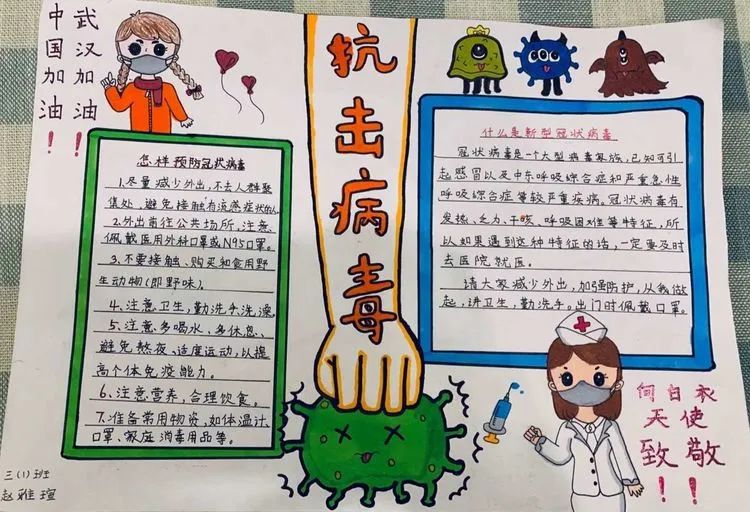 武汉加油！
中国加油！
抗击病毒
怎样预防冠状病毒
1.尽量减少外出，不去人群聚
集处，避免接触有流感症状的人
2.外出前往公共场所，注意
佩戴医用外科口罩或N95口罩。
3、不要接触、购买和食用野
生动物(即野味)。
4、注意卫生，勤洗手、洗澡
5、注意多喝水、多休息、
避免熬夜、适度运动，以提
高个体免疫能力。
6、注意营养，合理饮食。
7、准备常用物资，如体温计、
口罩、家庭消毒用品等。
什么是新型冠状病毒
冠状病毒是一个大型病毒家族，已知可引
起感冒以及中东呼吸综合症和严重急性
呼吸综合症等较严重疾病。冠状病毒有
发热、乏力、干咳、呼吸困难等特征，所
以如果遇到这种特征的话，一定要及时
去医院就医。
请大家减少外出，加强防护，从我做
起，讲卫生，勤洗手。出门时佩戴口罩。
向白衣
天使
致敬
！！
三(1)班
赵雅瑄